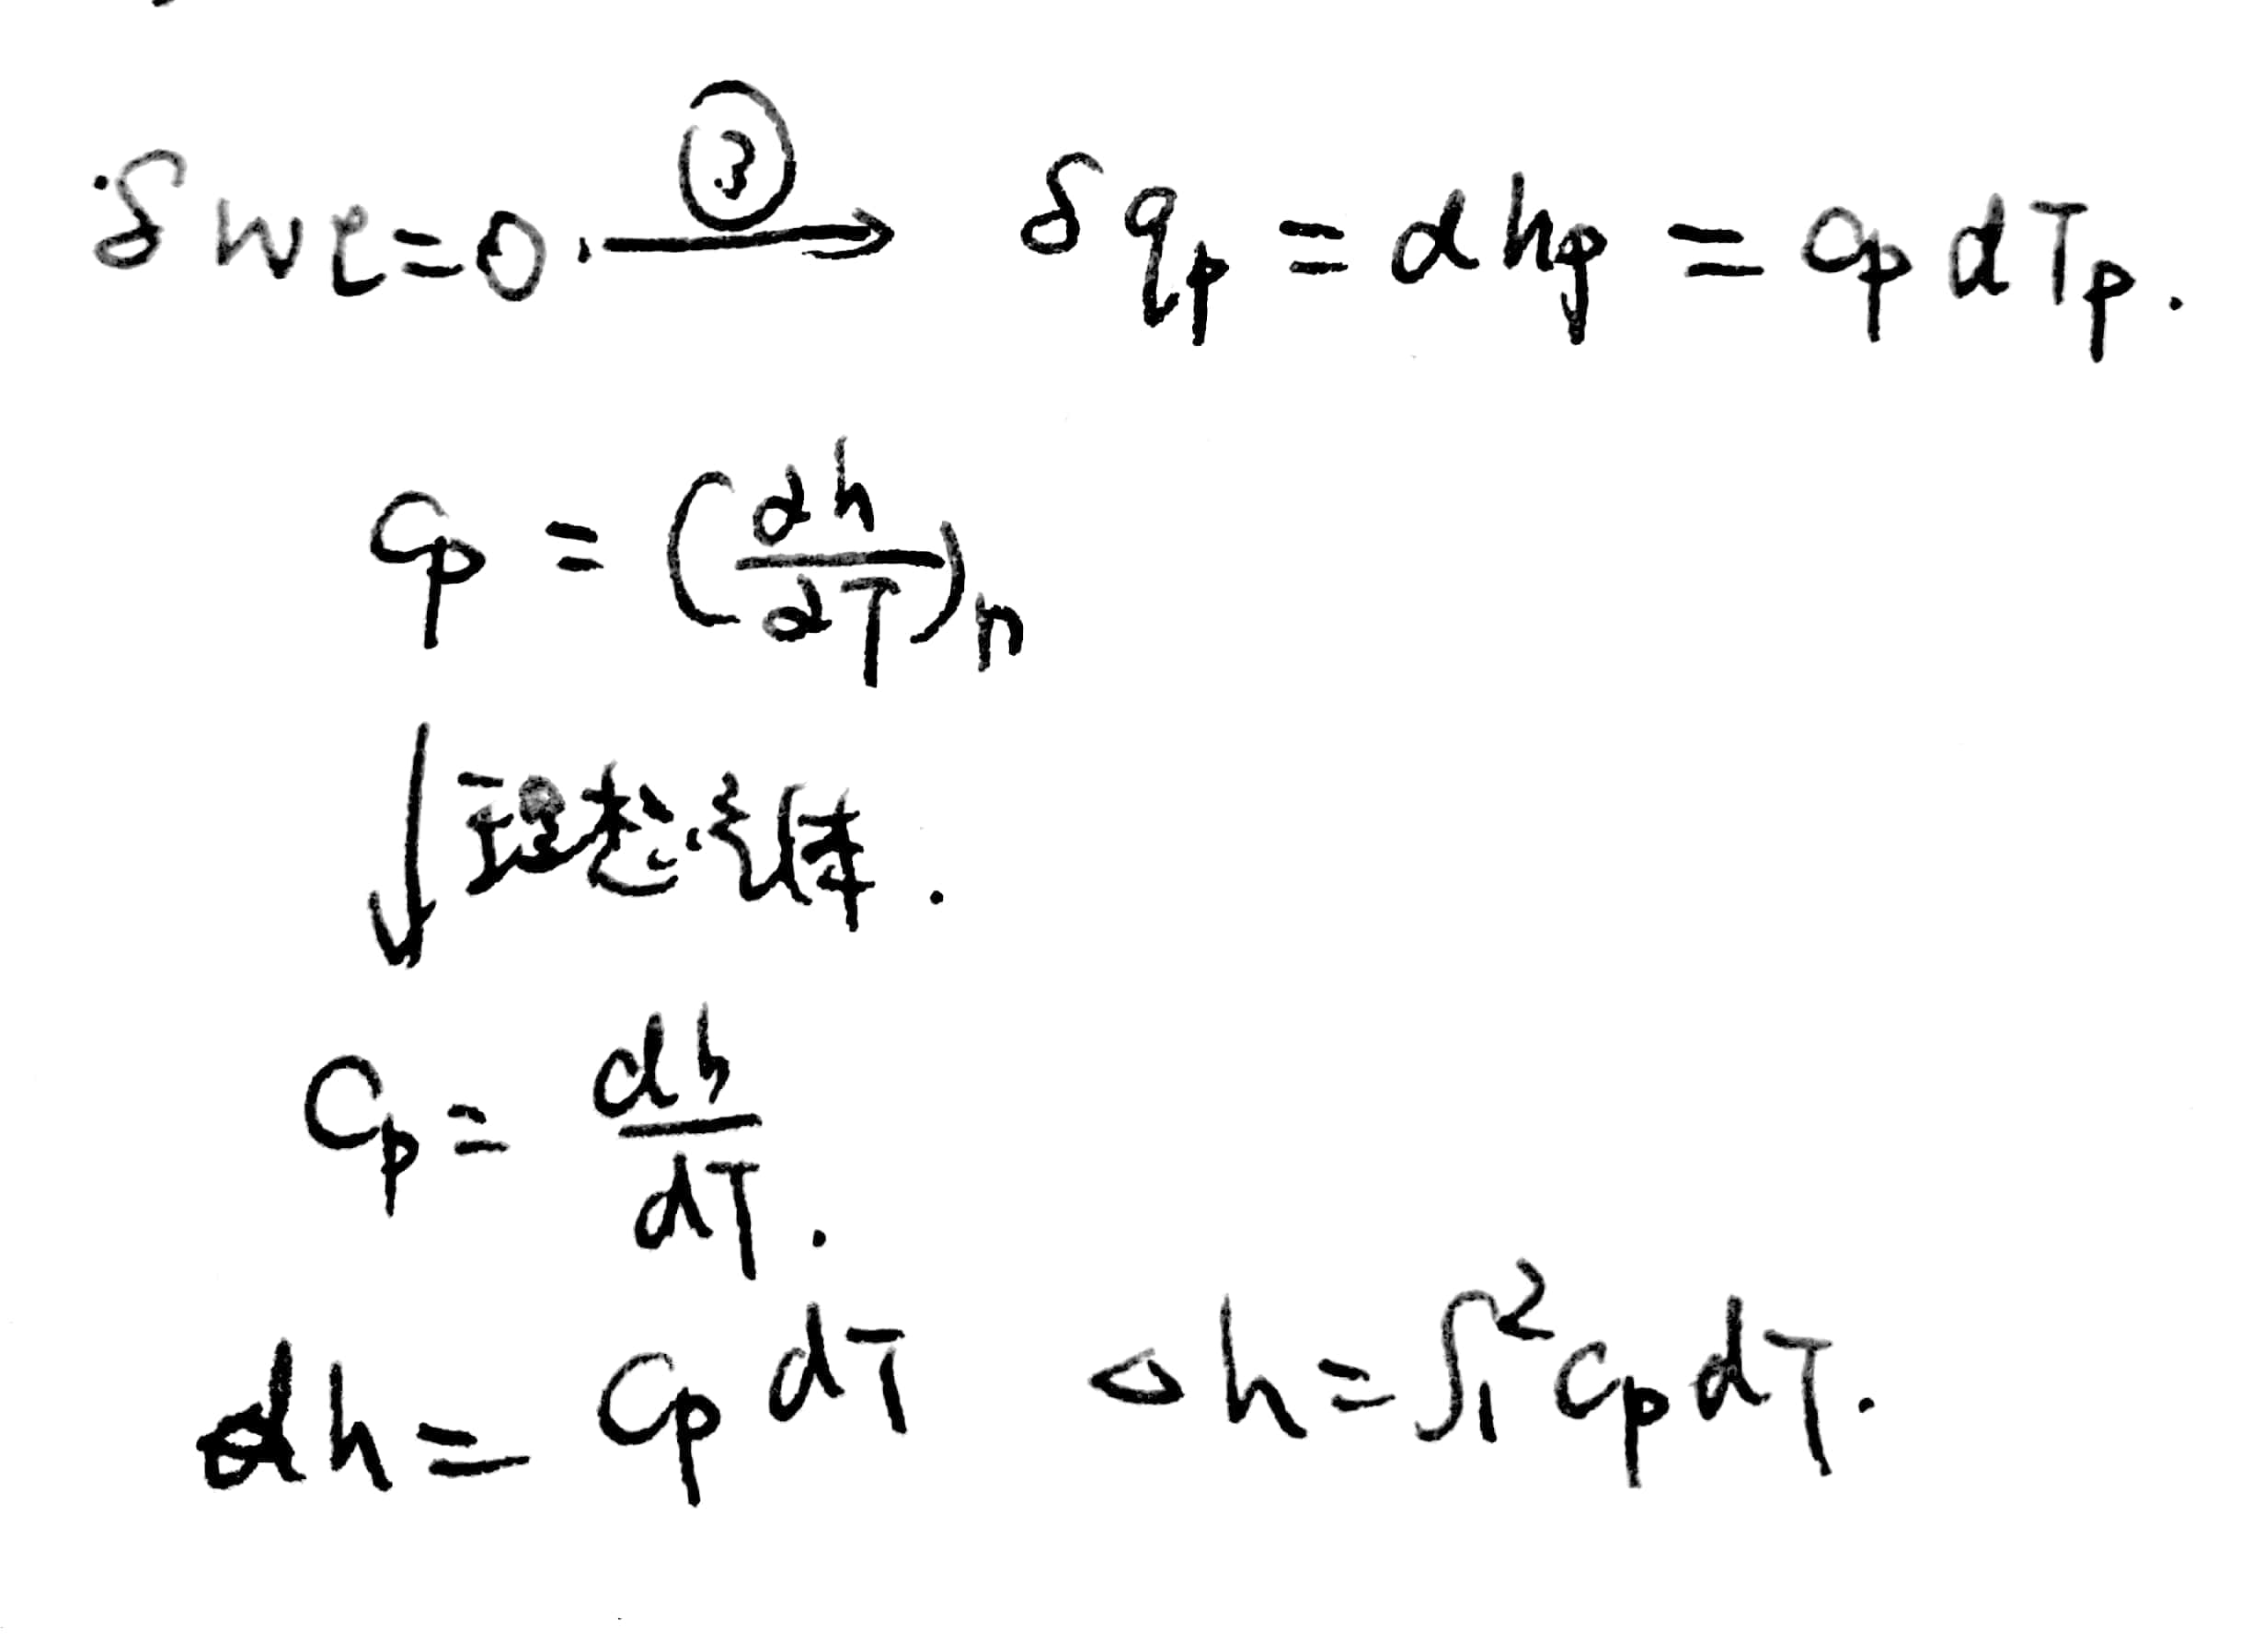 δwt=0. ③→ δqp = dhp = cp dTp.
cp = (∂h/∂T)p
↓理想气体.
Cp = dh/dT.
dh = cp dT  Δh = ∫₁² cp dT.